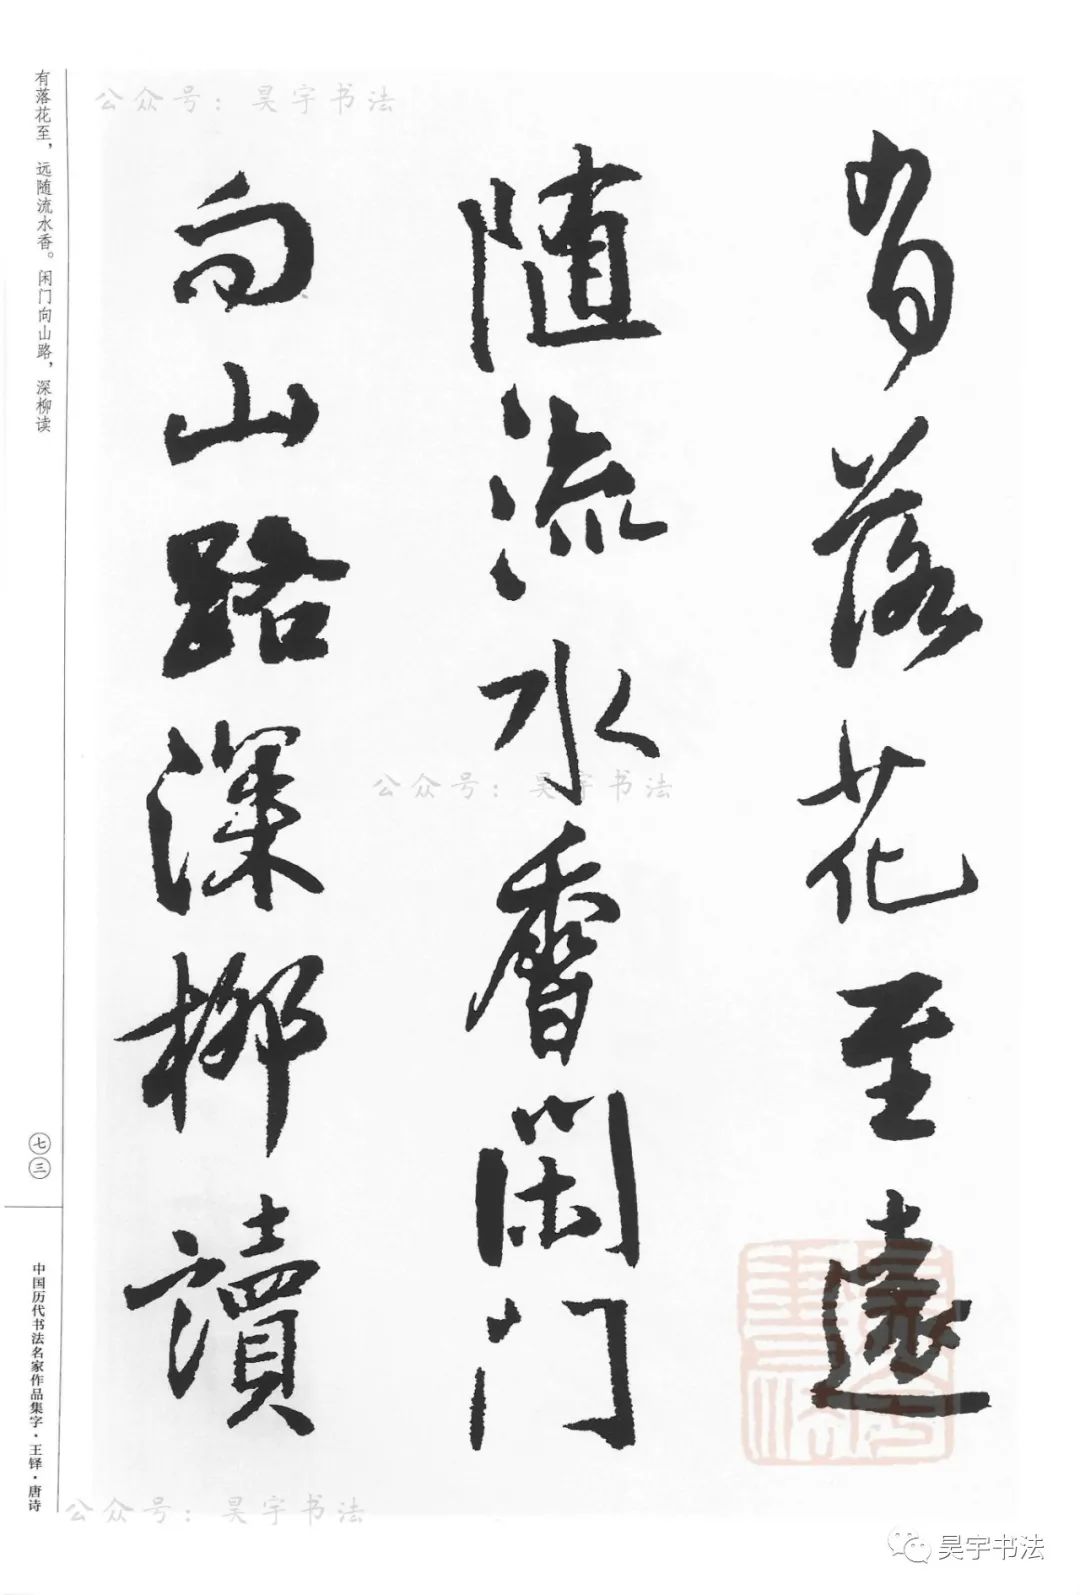 公众号：昊宇书法
有落花至遠
随流水香闲门
向山路深柳讀
有落花至，远随流水香。闲门向山路，深柳读
公众号：昊宇书法
七三
中国历代书法名家作品集字·王铎·唐诗
公众号：昊宇书法
昊宇书法